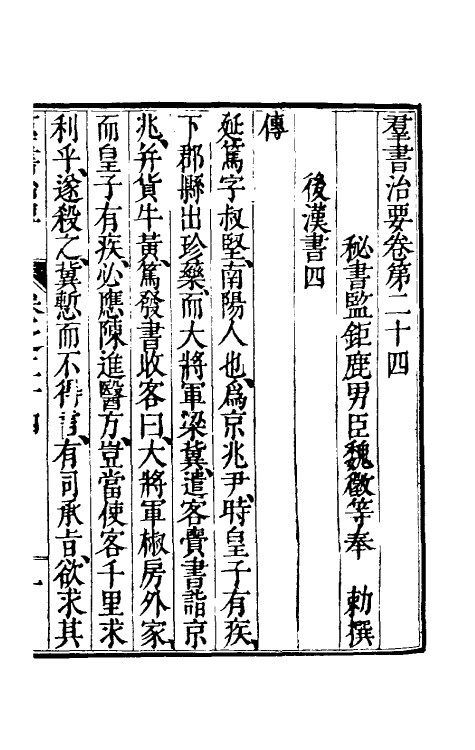 羣書治要卷第二十四
秘書監鉅鹿男臣魏徵等奉　勅撰
後漢書四
傳
延篤字叔堅、南陽人也、爲京兆尹、時皇子有疾、
下郡縣出珍藥、而大將軍梁冀、遣客賫書詣京
兆、幷貨牛黃、篤發書收客曰、大將軍椒房外家、
而皇子有疾、必應陳進醫方、豈當使客千里求
利乎、遂殺之、冀慙而不得言、有司承旨、欲求其